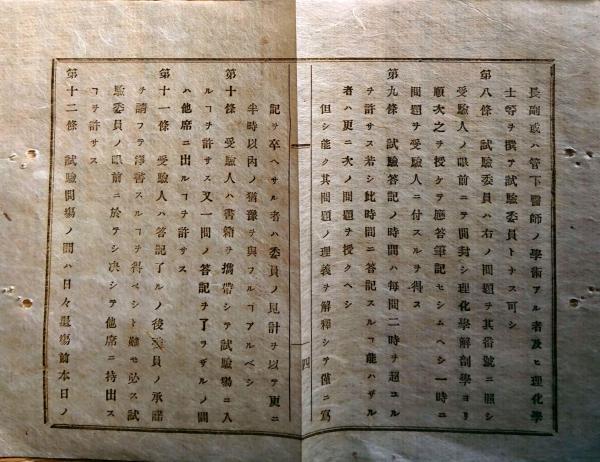 長副或ハ管下醫師ノ學術アル者及ヒ理化學
士等ヲ撰テ試驗委員トナス可シ
第八條　試驗委員ハ右ノ問題ヲ其番號ニ照シ
受驗人ノ眼前ニテ開封シ理化學解剖學ヨリ
順次之ヲ授ケテ應答筆記セシムヘシ一時ニ
問題ヲ受驗人ニ付スルヲ得ス
第九條　試驗答記ノ時間ハ每問二時ヲ超ユル
ヲ許サス若シ此時間ニ答記スルヿ能ハザル
者ハ更ニ次ノ問題ヲ授クヘシ
但シ能ク其問題ノ理義ヲ解釋シテ僅ニ寫
四
記ヲ卒ヘサル者ハ委員ノ見計ヲ以テ更ニ
半時以內ノ猶豫ヲ與フルヿアルベシ
第十條　受驗人ハ書籍ヲ携帶シテ試驗塲ニ入
ルヿヲ許サス又一問ノ答記ヲ了ラザルノ間
ハ他席ニ出ルヿヲ許サス
第十一條　受驗人ハ答記了ルノ後委員ノ承諾
ヲ請フテ淨書スルヿヲ得ベシト雖モ必ス試
驗委員ノ眼前ニ於テシ决シテ他席ニ持出ス
ヿヲ許サス
第十二條　試驗開塲ノ間ハ日々退塲前本日ノ